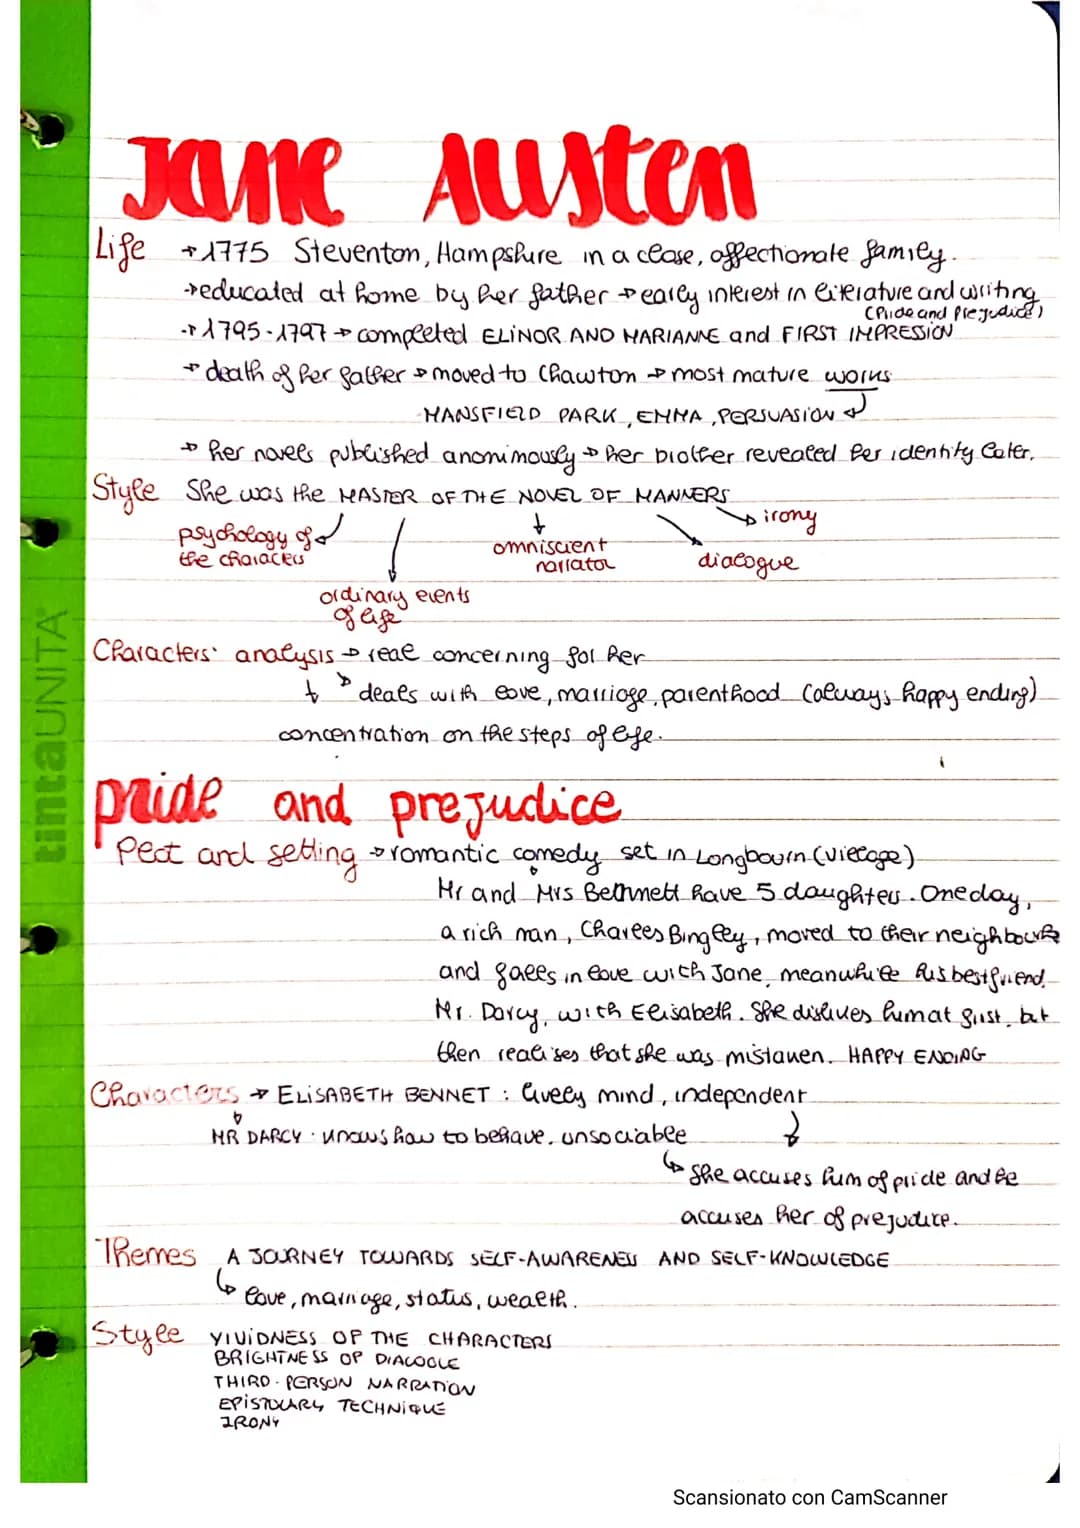 Jane Austen
Life → 1775 Steventon, Hampshire in a close, affectionate family.
→ educated at home by her father → early interest in literature and writing
(Pride and Prejudice)
→ 1795-1797 → completed ELINOR AND MARIANNE and FIRST IMPRESSION
→ death of her father → moved to Chawton → most mature works
MANSFIELD PARK, EMMA, PERSUASION
→ her novels published anonimously → her brother revealed her identity later.
Style She was the MASTER OF THE NOVEL OF MANNERS
irony
psychology of the characters
omniscient narrator
dialogue
ordinary events of life
Characters' analysis → real concerning for her
deals with love, marriage, parenthood (always happy ending)
concentration on the steps of life.
pride and prejudice
Plot and setting → romantic comedy set in Longbourn (village)
Mr and Mrs Bethnett have 5 daughters. One day,
a rich man, Charles Bingley, moved to their
and falls in love with Jane, meanwhile his best friend,
Mr. Darcy, with Elisabeth. She dislikes him at first, but
then realises that she was mistaken. HAPPY ENDING
Characters → ELISABETH BENNET: lively mind, independent
MR DARCY: knows how to behave, unsociable
She accuses him of pride and he
accuses her of prejudice.
Themes A JOURNEY TOWARDS SELF-AWARENESS AND SELF-KNOWLEDGE
love, marriage, status, wealth.
Style VIVIDNESS OF THE CHARACTERS
BRIGHTNESS OF DIALOGUE
THIRD-PERSON NARRATION
EPISTOLARY TECHNIQUE
IRONY
tintaUNITA
Scansionato con CamScanner